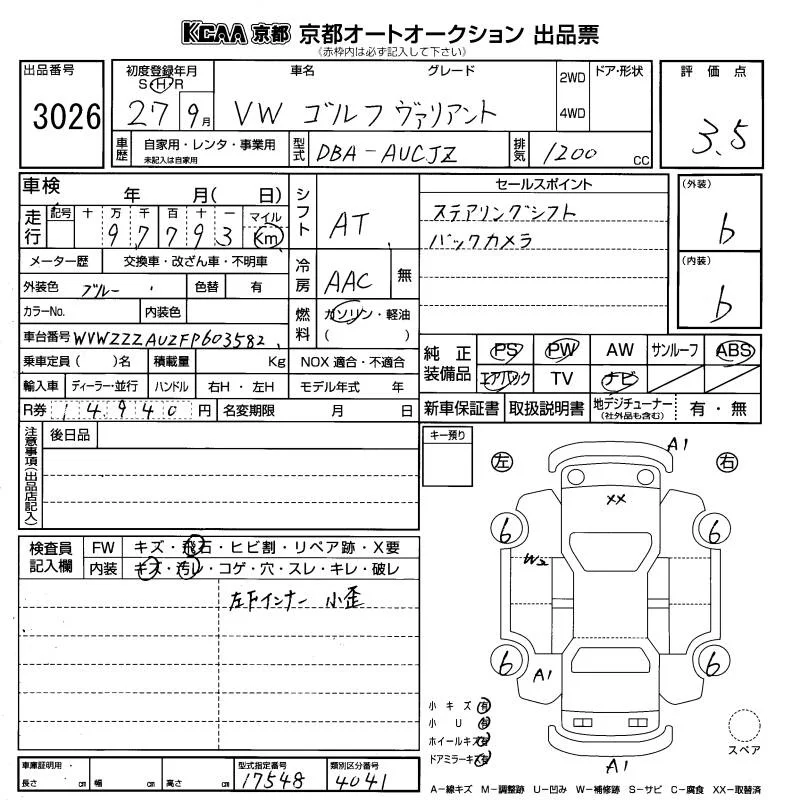 KCAA 京都 京都オートオークション 出品票
(赤枠内は必ず記入して下さい)
出品番号 初度登録年月 車名 グレード 2WD ドア・形状 評価点
S H R
3026 27 9月 VW ゴルフ ヴァリアント 4WD 3.5
車歴 自家用・レンタ・事業用 型式 DBA-AUCJZ 排気 1200 CC
未記入は自家用
車検 年 月( 日) シフト AT セールスポイント (外装)
走行 記号 十 万 千 百 十 一 マイル ステアリングシフト b
9 7 7 9 3 Km バックカメラ
メーター歴 交換車・改ざん車・不明車 冷房 AAC 無 (内装)
外装色 ブルー 色替 有 b
カラーNo. 内装色 燃料 ガソリン・軽油
車台番号 WVWZZZAUZFP603582 ( )
乗車定員( )名 積載量 Kg NOX 適合・不適合 純正装備品 PS PW AW サンルーフ ABS
輸入車 ディーラー・並行 ハンドル 右H・左H モデル年式 年 エアバック TV ナビ
R券 14940円 名変期限 月 日 新車保証書 取扱説明書 地デジチューナー 有・無
(社外品も含む)
注意事項(出品店記入) 後日品 キー預り A1
左 右
XX
検査員記入欄 FW キズ・飛石・ヒビ割・リペア跡・X要 6 6
内装 キズ・汚レ・コゲ・穴・スレ・キレ・破レ W2
左下インナー 小歪
6 6
A1
小キズ 有
小U 有
ホイールキズ 有
ドアミラーキズ 有
A1 スペア
車庫証明用・ 型式指定番号 類別区分番号
長さ cm 幅 cm 高さ cm 17548 4041
A-線キズ M-調整跡 U-凹み W-補修跡 S-サビ C-腐食 XX-取替済